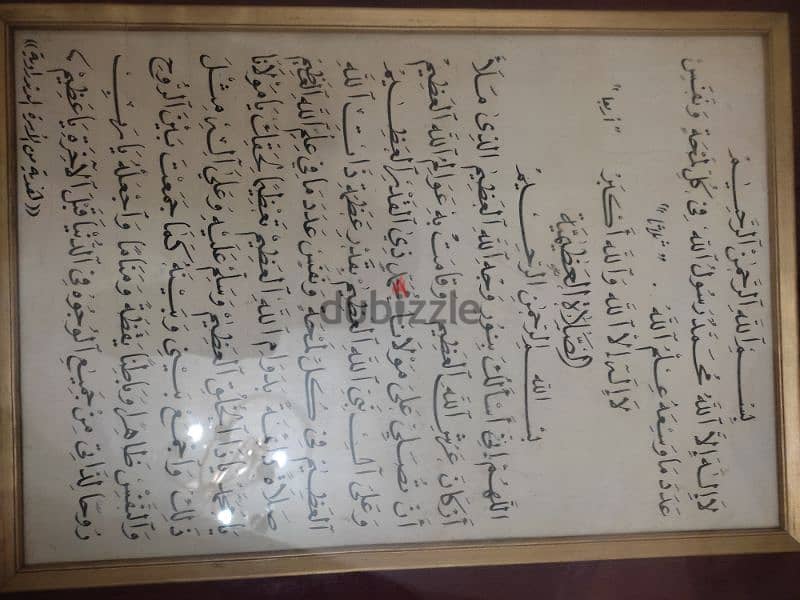 بِسْمِ اللَّهِ الرَّحْمَنِ الرَّحِيمِ
لَا إِلَهَ إِلَّا اللَّهُ مُحَمَّدٌ رَسُولُ اللَّهِ فِي كُلِّ لَمْحَةٍ وَنَفَسٍ
عَدَدَ مَا وَسِعَهُ عِلْمُ اللَّهِ .
لَا إِلَهَ إِلَّا اللَّهُ وَاللَّهُ أَكْبَرُ
(الصَّلَاةُ الْعَظِيمِيَّةُ)
بِسْمِ اللَّهِ الرَّحْمَنِ الرَّحِيمِ
اللَّهُمَّ إِنِّي أَسْأَلُكَ بِنُورِ وَجْهِ اللَّهِ الْعَظِيمِ الَّذِي مَلَأَ
أَرْكَانَ عَرْشِ اللَّهِ الْعَظِيمِ وَقَامَتْ بِهِ عَوَالِمُ اللَّهِ الْعَظِيمِ
أَنْ تُصَلِّيَ عَلَى مَوْلَانَا ذِي الْقَدْرِ الْعَظِيمِ
وَعَلَى آلِ نَبِيِّ اللَّهِ الْعَظِيمِ بِقَدْرِ عَظَمَةِ ذَاتِ اللَّهِ
الْعَظِيمِ فِي كُلِّ لَمْحَةٍ وَنَفَسٍ عَدَدَ مَا فِي عِلْمِ اللَّهِ الْعَظِيمِ
صَلَاةً دَائِمَةً بِدَوَامِ اللَّهِ الْعَظِيمِ تَعْظِيمًا لِحَقِّكَ يَا مَوْلَانَا
يَا مُحَمَّدُ يَا ذَا الْخُلُقِ الْعَظِيمِ وَسَلِّمْ عَلَيْهِ وَعَلَى آلِهِ مِثْلَ
ذَلِكَ وَاجْمَعْ بَيْنِي وَبَيْنَهُ كَمَا جَمَعْتَ بَيْنَ الرُّوحِ
وَالنَّفْسِ ظَاهِرًا وَبَاطِنًا يَقَظَةً وَمَنَامًا وَاجْعَلْهُ يَا رَبِّ
رُوحًا لِذَاتِي مِنْ جَمِيعِ الْوُجُوهِ فِي الدُّنْيَا قَبْلَ الْآخِرَةِ يَا عَظِيمُ
dubizzle